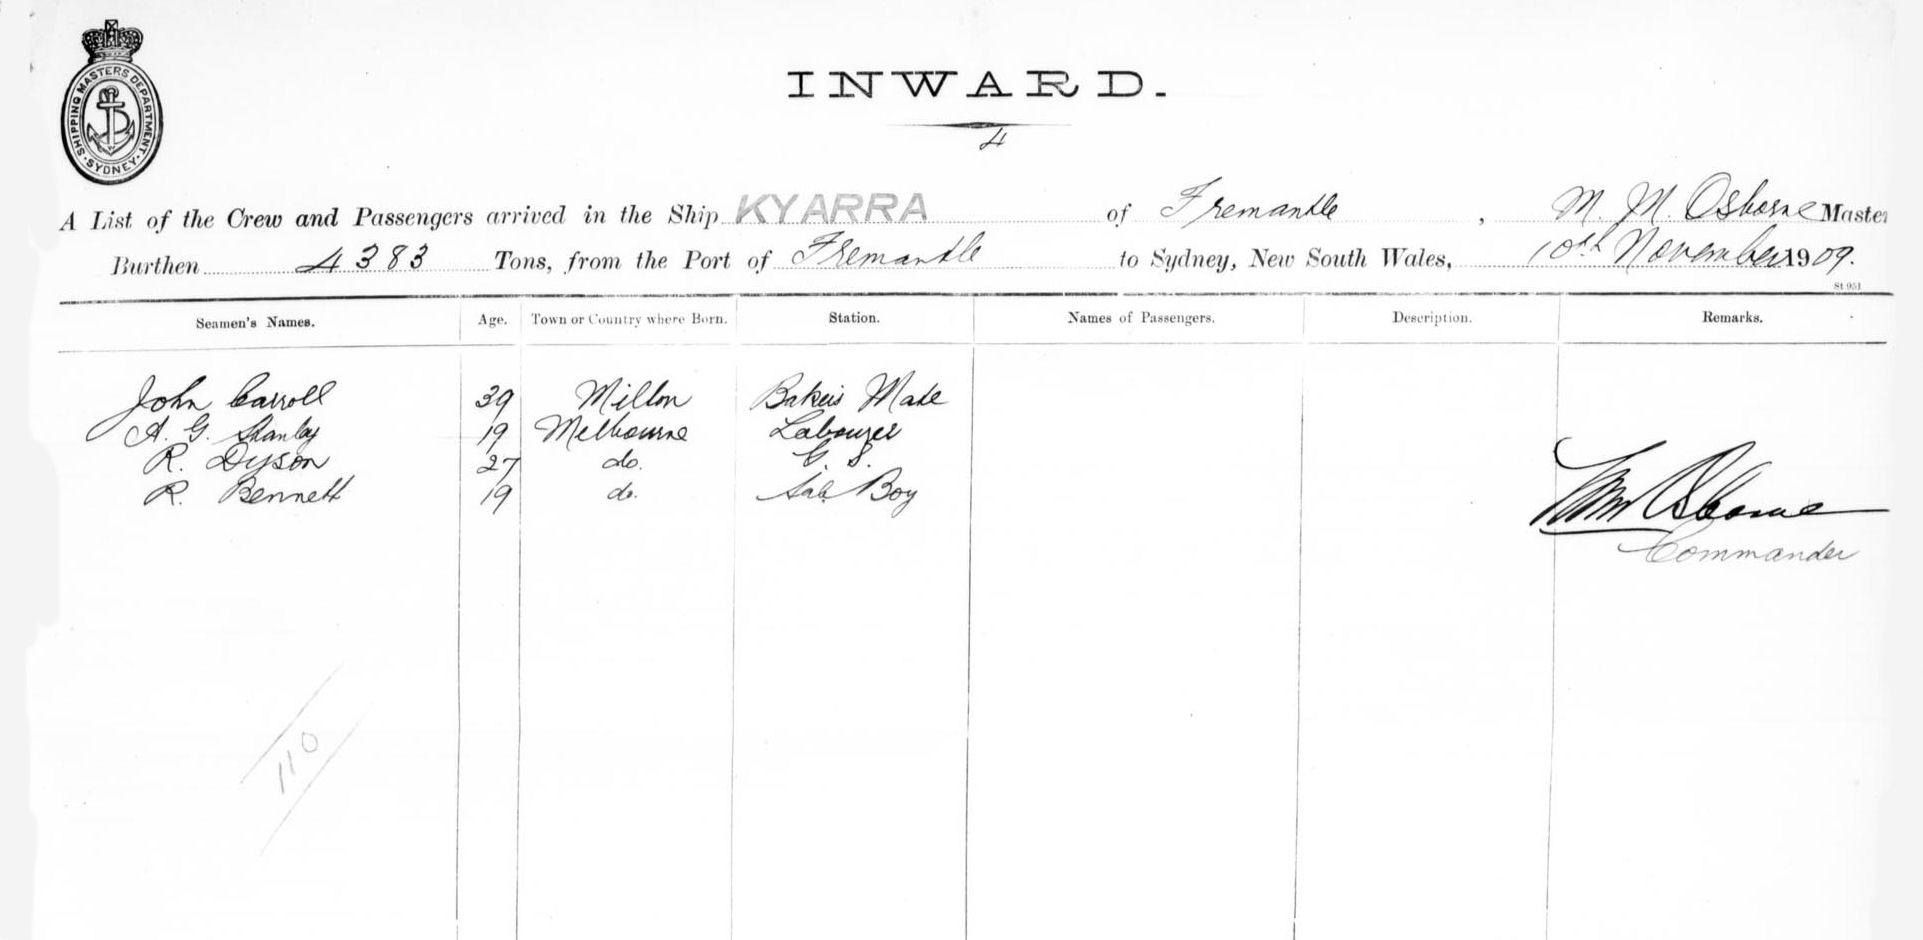 SHIPPING MASTERS DEPARTMENT
SYDNEY
INWARD.
4
A List of the Crew and Passengers arrived in the Ship KYARRA of Fremantle, M. M. Osborne Master
Burthen 4383 Tons, from the Port of Fremantle to Sydney, New South Wales, 10th November 1909.
St 951
Seamen's Names. Age. Town or Country where Born. Station. Names of Passengers. Description. Remarks.
John Carroll 39 Millon Bakers Mate
A. G. Stanley 19 Melbourne Labourer
R. Dyson 27 do. G. S.
R. Bennett 19 do. Boy
Osborne
Commander
110